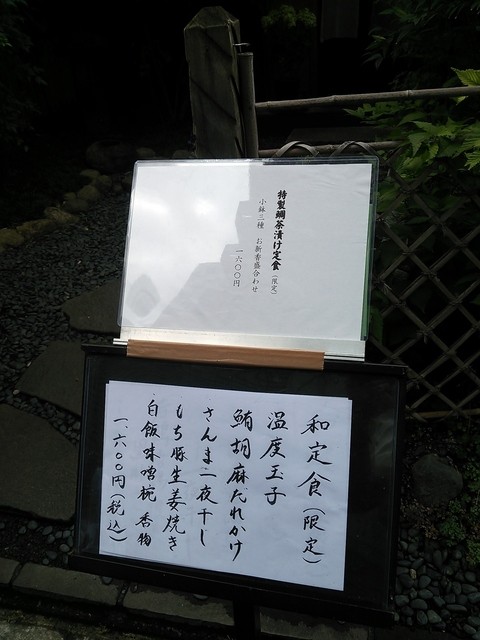 特製鯛茶漬け定食(限定)
小鉢三種 お新香盛合わせ
一六〇〇円
和定食(限定)
温度玉子
鮪胡麻だれかけ
さんま一夜干し
もち豚生姜焼き
白飯味噌椀 香物
一、六〇〇円(税込)